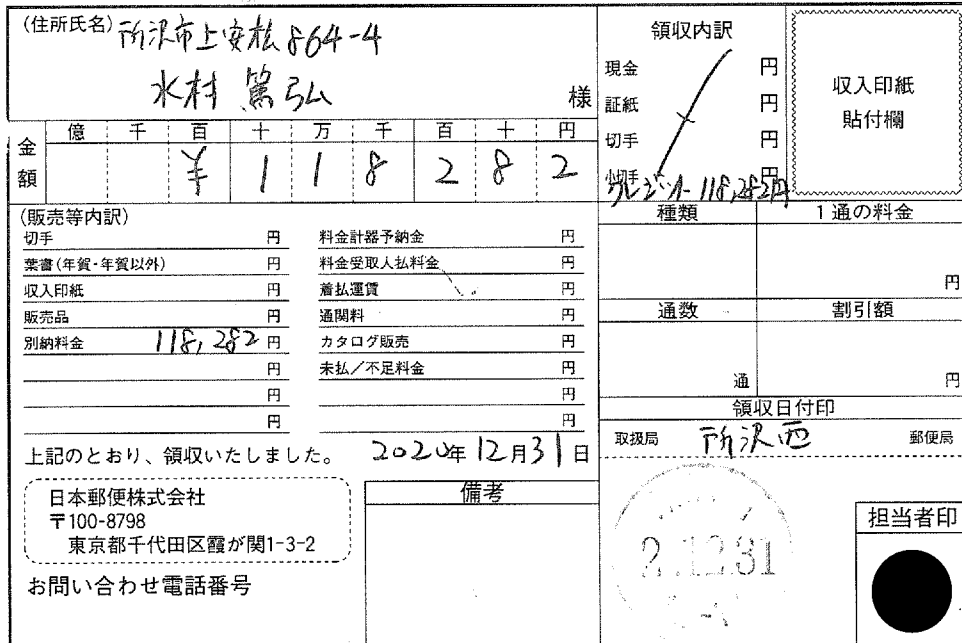 (住所氏名) 所沢市上安松864-4
水村 篤弘 様
金額 億 千 百 十 万 千 百 十 円
¥118282
領収内訳
現金 円
証紙 円
切手 円
小切手 円
クレジット 118,282円
収入印紙
貼付欄
(販売等内訳)
切手 円
葉書(年賀・年賀以外) 円
収入印紙 円
販売品 円
別納料金 118,282円
円
円
円
料金計器予納金 円
料金受取人払料金 円
着払運賃 円
通関料 円
カタログ販売 円
未払/不足料金 円
円
円
種類 1通の料金
円
通数 割引額
通 円
領収日付印
取扱局 所沢西 郵便局
上記のとおり、領収いたしました。 2020年12月31日
日本郵便株式会社
〒100-8798
東京都千代田区霞が関1-3-2
お問い合わせ電話番号
備考
2.12.31
担当者印